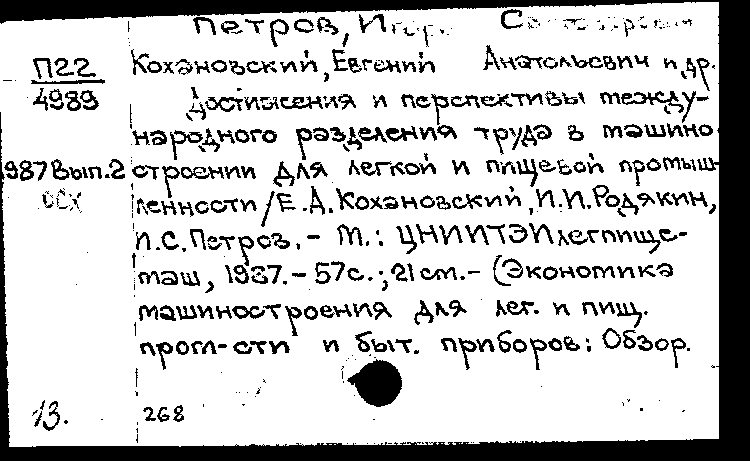 Петров, Игорь
П22 Кохановский, Евгений Анатольевич и др.
4989 Достижения и перспективы между-
народного разделения труда в машино-
1987 Вып.2 строении для легкой и пищевой промыш-
ОСХ ленности / Е.А. Кохановский, И.И. Родякин,
И.С. Петров. - М.: ЦНИИТЭИлегпище-
маш, 1987. - 57с.; 21 см. - (Экономика
машиностроения для лег. и пищ.
пром-сти и быт. приборов: Обзор.
13. 268